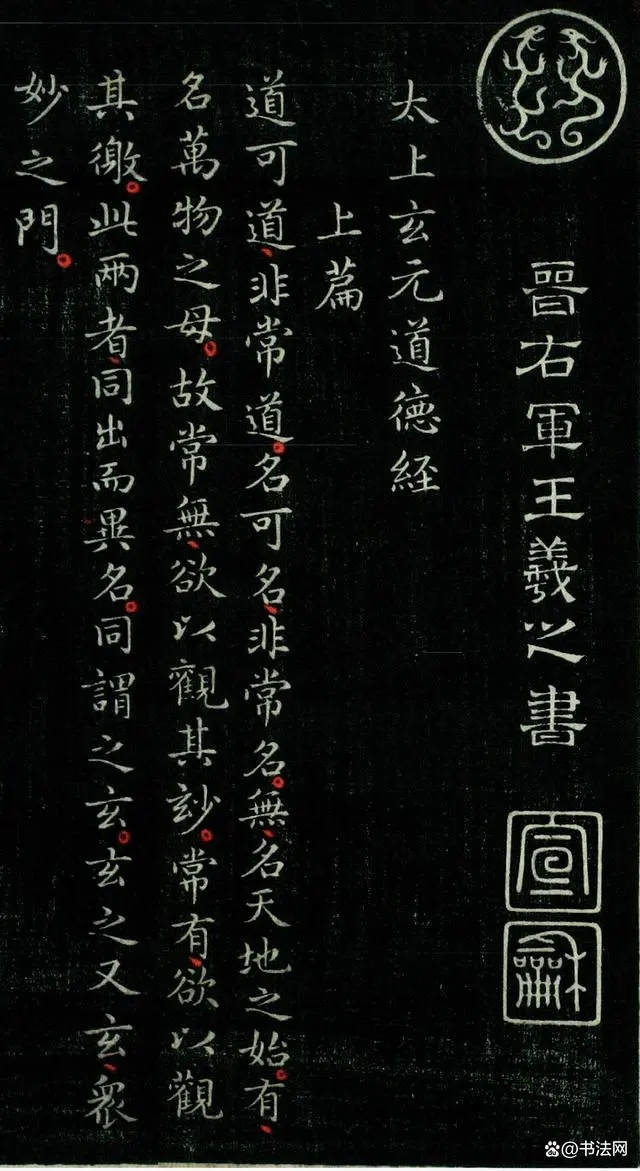 晉右軍王羲之書
宣
龢
太上玄元道德経
上篇
道可道、非常道。名可名、非常名。無、名天地之始。有、
名萬物之母。故常無、欲以觀其玅。常有、欲以觀
其徼。此兩者、同出而異名。同謂之玄。玄之又玄、衆
妙之門。
@书法网